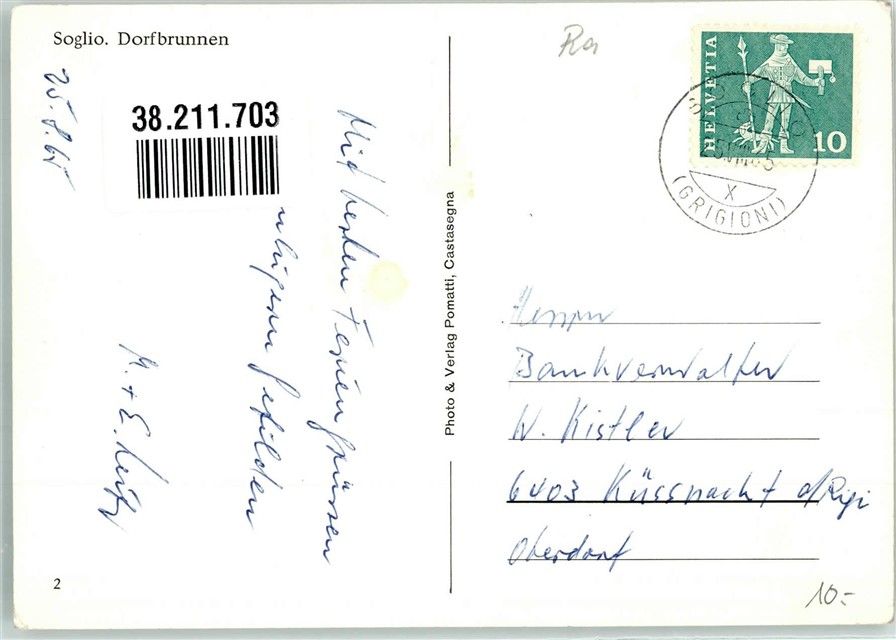 Soglio. Dorfbrunnen
25.8.65
38.211.703
Mit besten Feriengrüssen
Gefilden
M. + E.
2
Photo & Verlag Pomatti, Castasegna
Ra
HELVETIA
10
(GRIGIONI)
X
Herrn
Bankverwalter
W. Kistler
6403 Küssnacht a/Rigi
Oberdorf
10.-